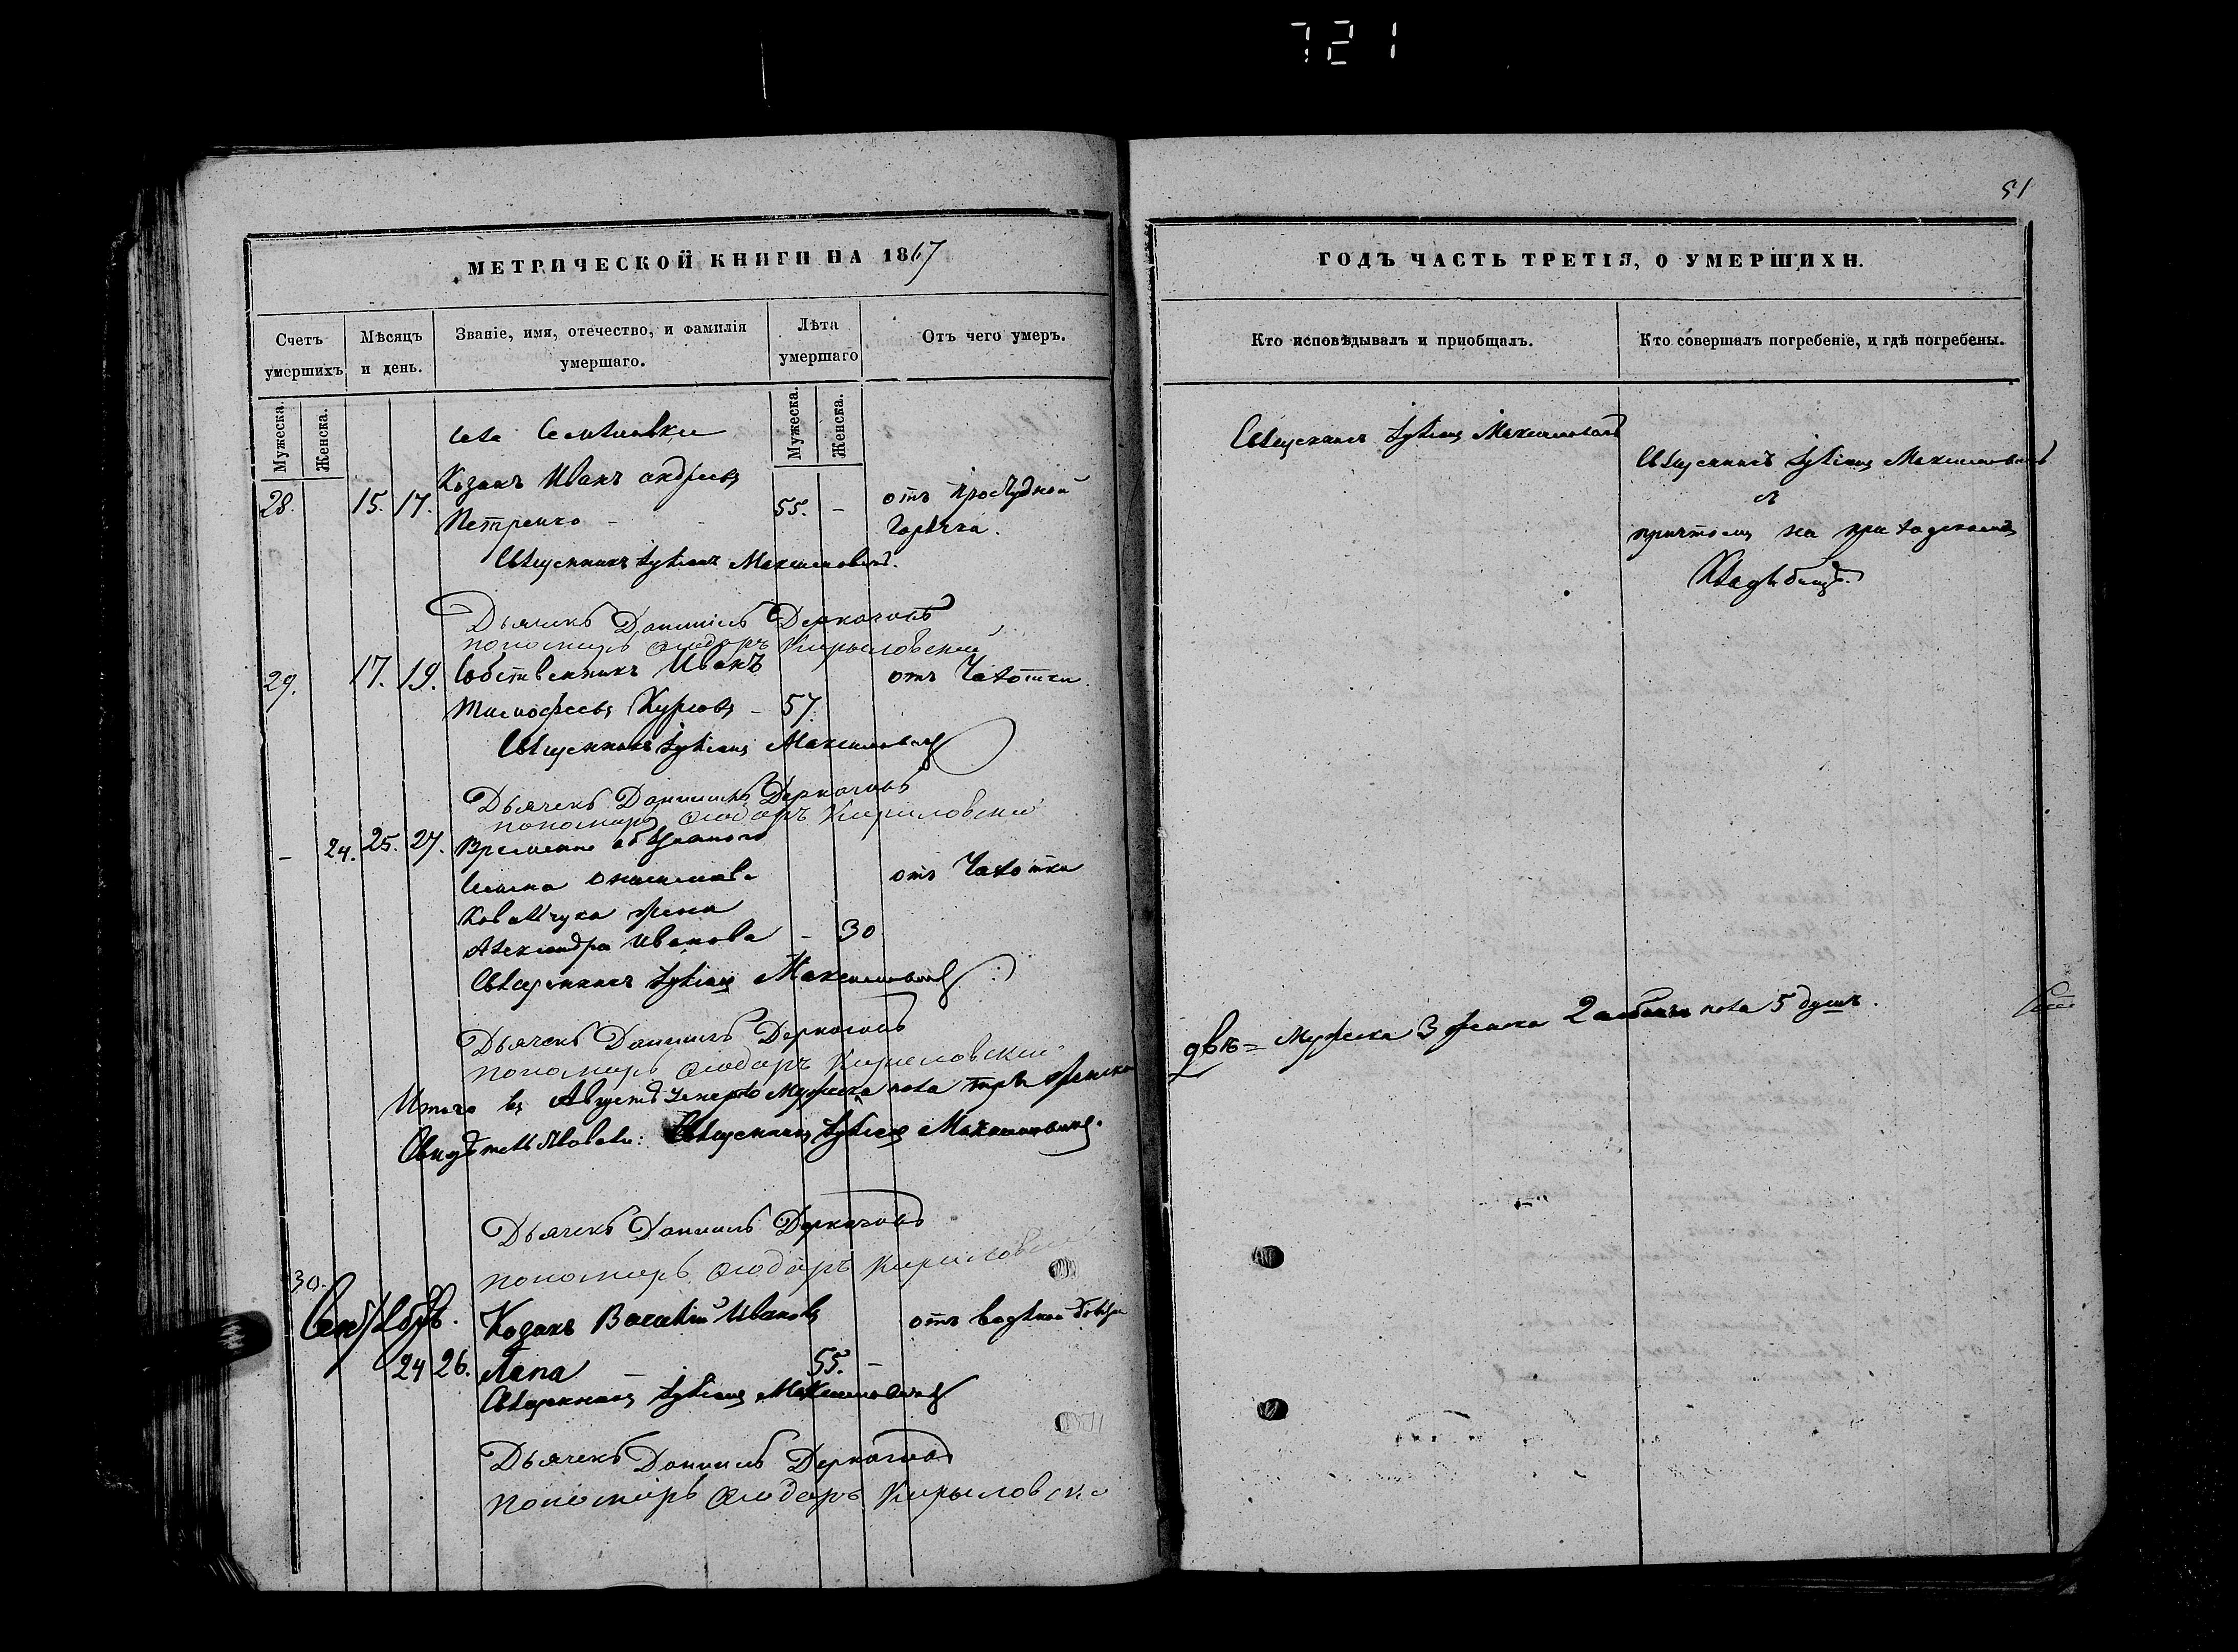 721
51
МЕТРИЧЕСКОЙ КНИГИ НА 1867
Счетъ умершихъ
Мѣсяцъ и день.
Званіе, имя, отечество, и фамилія умершаго.
Лѣта умершаго
Отъ чего умеръ.
Мужеска.
Женска.
Мужеска.
Женска.
села
28. 15. 17. Козакъ Иванъ Андреевъ
Петренко 55. - отъ простудной
горячки.
Священникъ Лукіанъ Максимовичъ.
Дьячекъ Даниилъ Деркачовъ
пономарь Ѳеодоръ Кирыловскій
29. 17. 19. Собственникъ Иванъ отъ Чахотки
Тимофеевъ - 57.
Священникъ Лукіанъ Максимовичъ
Дьячекъ Даниилъ Деркачовъ
пономарь Ѳеодоръ Кириловскій
- 24. 25. 27. Временно обязаннаго
отъ Чахотки
Ковальчука жена
Александра Иванова - 30
Священникъ Лукіанъ Максимовичъ
Дьячекъ Даниилъ Деркачовъ
пономарь Ѳеодоръ Кириловскій
Итого въ Августѣ умерло Мужеска пола три женска
Священникъ Лукіанъ Максимовичъ.
Дьячекъ Даниилъ Деркачовъ
пономарь Ѳеодоръ Кириловскій
30.
Сентябрь. Козакъ Василій Ивановъ отъ водяной
24 26. Лапа 55. -
Священникъ Лукіанъ Максимовичъ
Дьячекъ Даниилъ Деркачовъ
пономарь Ѳеодоръ Кирыловскі
ГОДЪ ЧАСТЬ ТРЕТІЯ, О УМЕРШИХЪ.
Кто исповѣдывалъ и пріобщалъ.
Кто совершалъ погребеніе, и гдѣ погребены.
Священникъ Лукіанъ Максимовичъ
Священникъ Лукіанъ Максимовичъ
съ
причтомъ на приходскомъ
Кладбищѣ.
двѣ = Мужска 3 женска 2 пола 5 душъ.